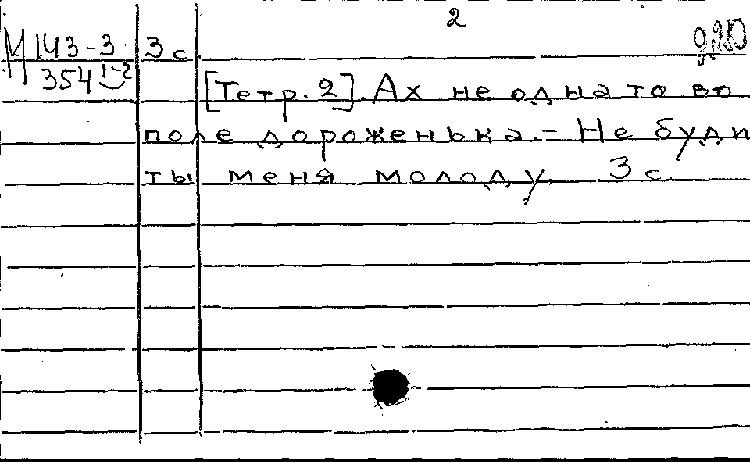 2
М 143-3 3 с
354 1-2
[Тетр. 2]. Ах не одна то во
поле дороженька. - Не буди
ты меня молоду 3 с